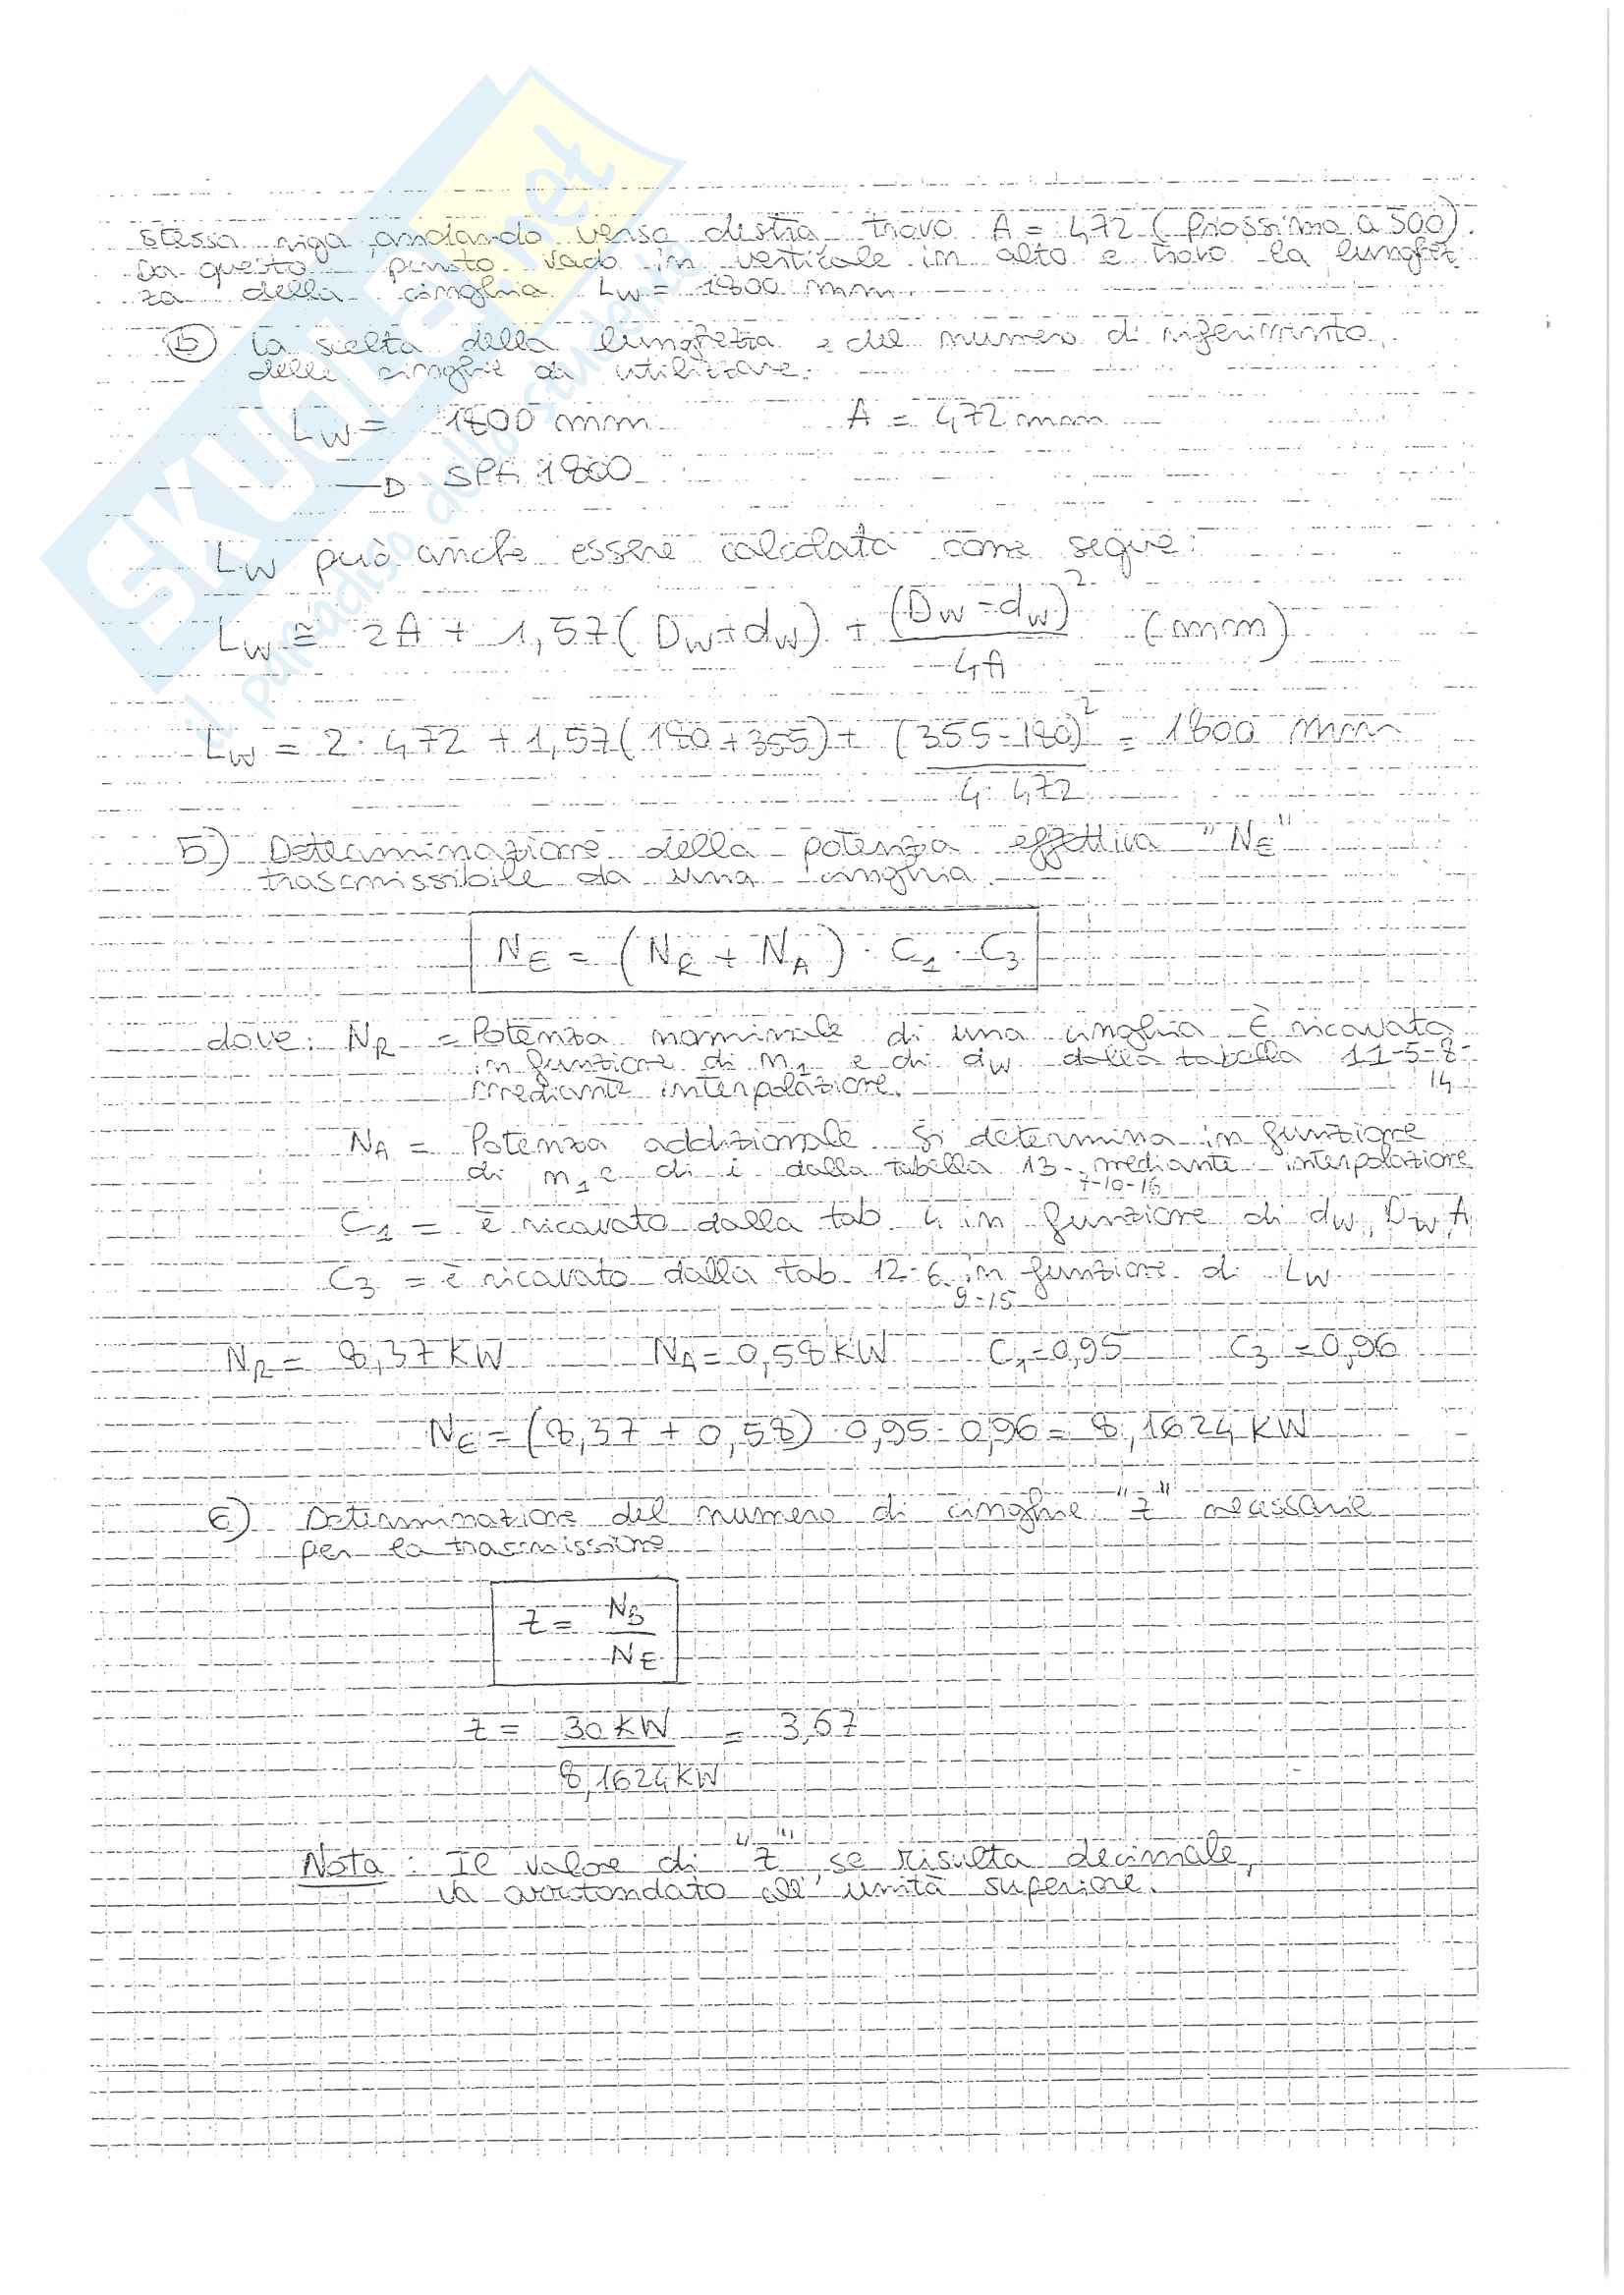 stessa riga andando verso destra trovo A = 472 (prossimo a 500).
Da questo punto vado in verticale in alto e trovo la lunghez
za della cinghia Lw = 1800 mm.
b) la scelta della lunghezza e del numero di riferimento
delle cinghie da utilizzare.
Lw = 1800 mm A = 472 mm
→ SPA 1800
Lw può anche essere calcolata come segue:
Lw ≅ 2A + 1,57 (Dw + dw) + (Dw - dw)² / 4A (mm)
Lw = 2 · 472 + 1,57 (180 + 355) + (355 - 180)² / 4 · 472 = 1800 mm
5) Determinazione della potenza effettiva "NE"
trasmissibile da una cinghia.
NE = (NR + NA) · C1 · C3
dove: NR = Potenza nominale di una cinghia. È ricavata
in funzione di n1 e di dw dalla tabella 11-5-8-
14
mediante interpolazione.
NA = Potenza addizionale. Si determina in funzione
di n1 e di i dalla tabella 13- mediante interpolazione
7-10-16
C1 = è ricavato dalla tab 4 in funzione di dw, Dw, A
C3 = è ricavato dalla tab 12-6 in funzione di Lw
9-15
NR = 8,37 KW NA = 0,58 KW C1 = 0,95 C3 = 0,96
NE = (8,37 + 0,58) · 0,95 · 0,96 = 8,1624 KW
6) Determinazione del numero di cinghie "z" necessarie
per la trasmissione
z = NB / NE
z = 30 KW / 8,1624 KW = 3,67
Nota: Il valore di "z" se risulta decimale,
va arrotondato all'unità superiore.
SKUOLA.net
il paradiso dello studente